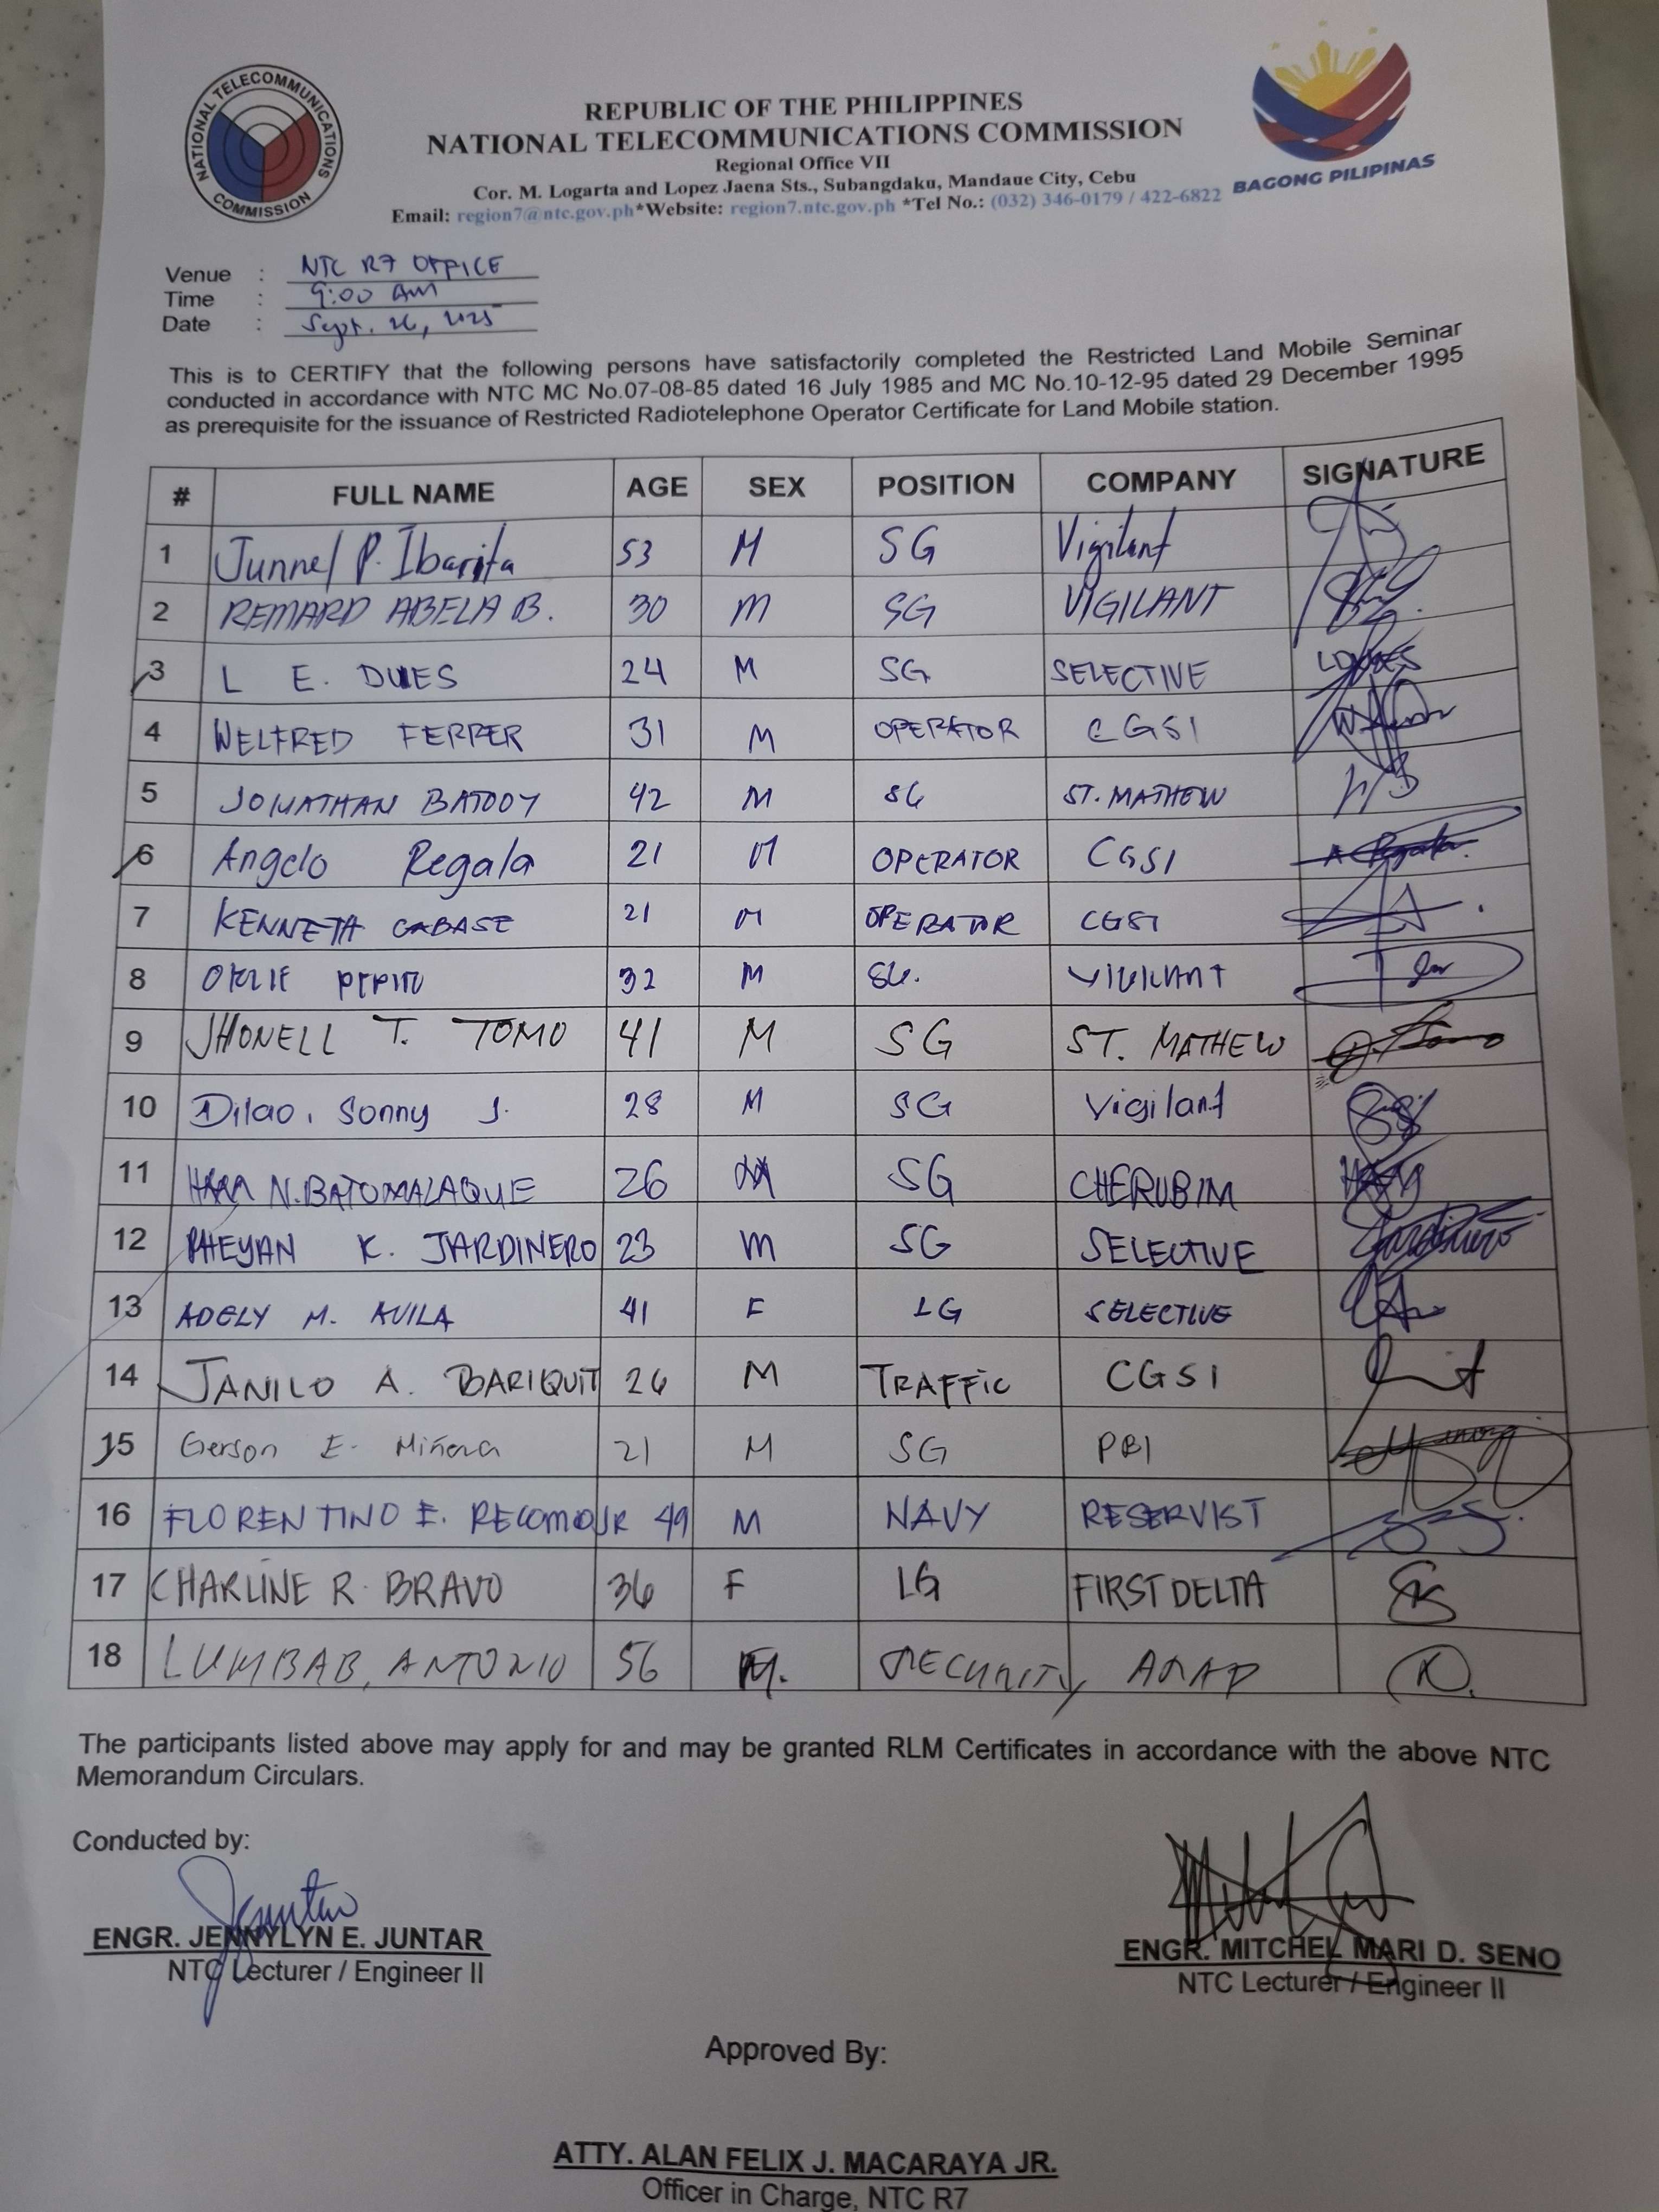 NATIONAL TELECOMMUNICATIONS COMMISSION
REPUBLIC OF THE PHILIPPINES
NATIONAL TELECOMMUNICATIONS COMMISSION
Regional Office VII
Cor. M. Logarta and Lopez Jaena Sts., Subangdaku, Mandaue City, Cebu
Email: region7@ntc.gov.ph*Website: region7.ntc.gov.ph *Tel No.: (032) 346-0179 / 422-6822
BAGONG PILIPINAS
Venue : NTC R7 OFFICE
Time : 9:00 AM
Date : Sept. 26, 2025
This is to CERTIFY that the following persons have satisfactorily completed the Restricted Land Mobile Seminar
conducted in accordance with NTC MC No.07-08-85 dated 16 July 1985 and MC No.10-12-95 dated 29 December 1995
as prerequisite for the issuance of Restricted Radiotelephone Operator Certificate for Land Mobile station.
# FULL NAME AGE SEX POSITION COMPANY SIGNATURE
1 Junnel P. Ibarita 53 M SG Vigilant
2 REMARD ABELA B. 30 M SG VIGILANT
3 L E. 24 M SG SELECTIVE
4 WELFRED FERRER 31 M OPERATOR CGSI
5 JONATHAN 42 M SG ST. MATHEW
6 Angelo Regala 21 M OPERATOR CGSI
7 KENNETH CABASE 21 M OPERATOR CGSI
8 PEPITO 32 M SG. VIGILANT
9 JHONELL T. TOMO 41 M SG ST. MATHEW
10 Dilao, Sonny J. 28 M SG Vigilant
11 N. BATOMALAQUE 26 M SG CHERUBIM
12 RHEYAN K. JARDINERO 23 M SG SELECTIVE
13 ADELY M. AVILA 41 F LG SELECTIVE
14 JANILO A. BARIQUIT 26 M TRAFFIC CGSI
15 Gerson E. 21 M SG PBI
16 FLORENTINO E. RECOMO JR 49 M NAVY RESERVIST
17 CHARLINE R. BRAVO 36 F LG FIRST DELTA
18 LUMBAB, ANTONIO 56 M. SECURITY
The participants listed above may apply for and may be granted RLM Certificates in accordance with the above NTC
Memorandum Circulars.
Conducted by:
ENGR. JENNYLYN E. JUNTAR
NTC Lecturer / Engineer II
ENGR. MITCHEL MARI D. SENO
NTC Lecturer / Engineer II
Approved By:
ATTY. ALAN FELIX J. MACARAYA JR.
Officer in Charge, NTC R7